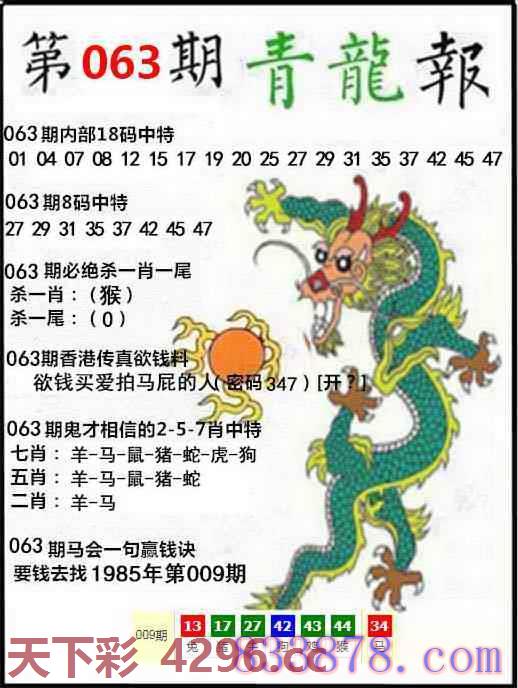 第063期青龍報
063期内部18码中特
01 04 07 08 12 15 17 19 20 25 27 29 31 35 37 42 45 47
063期8码中特
27 29 31 35 37 42 45 47
063期必绝杀一肖一尾
杀一肖：（猴）
杀一尾：（0）
063期香港传真欲钱料
欲钱买爱拍马屁的人（密码347）[开？]
063期鬼才相信的2-5-7肖中特
七肖：羊-马-鼠-猪-蛇-虎-狗
五肖：羊-马-鼠-猪-蛇
二肖：羊-马
063期马会一句赢钱诀
要钱去找1985年第009期
009期 13 17 27 42 43 44 34
兔 狗 猴 马
天下彩 4296.cc
833878.com